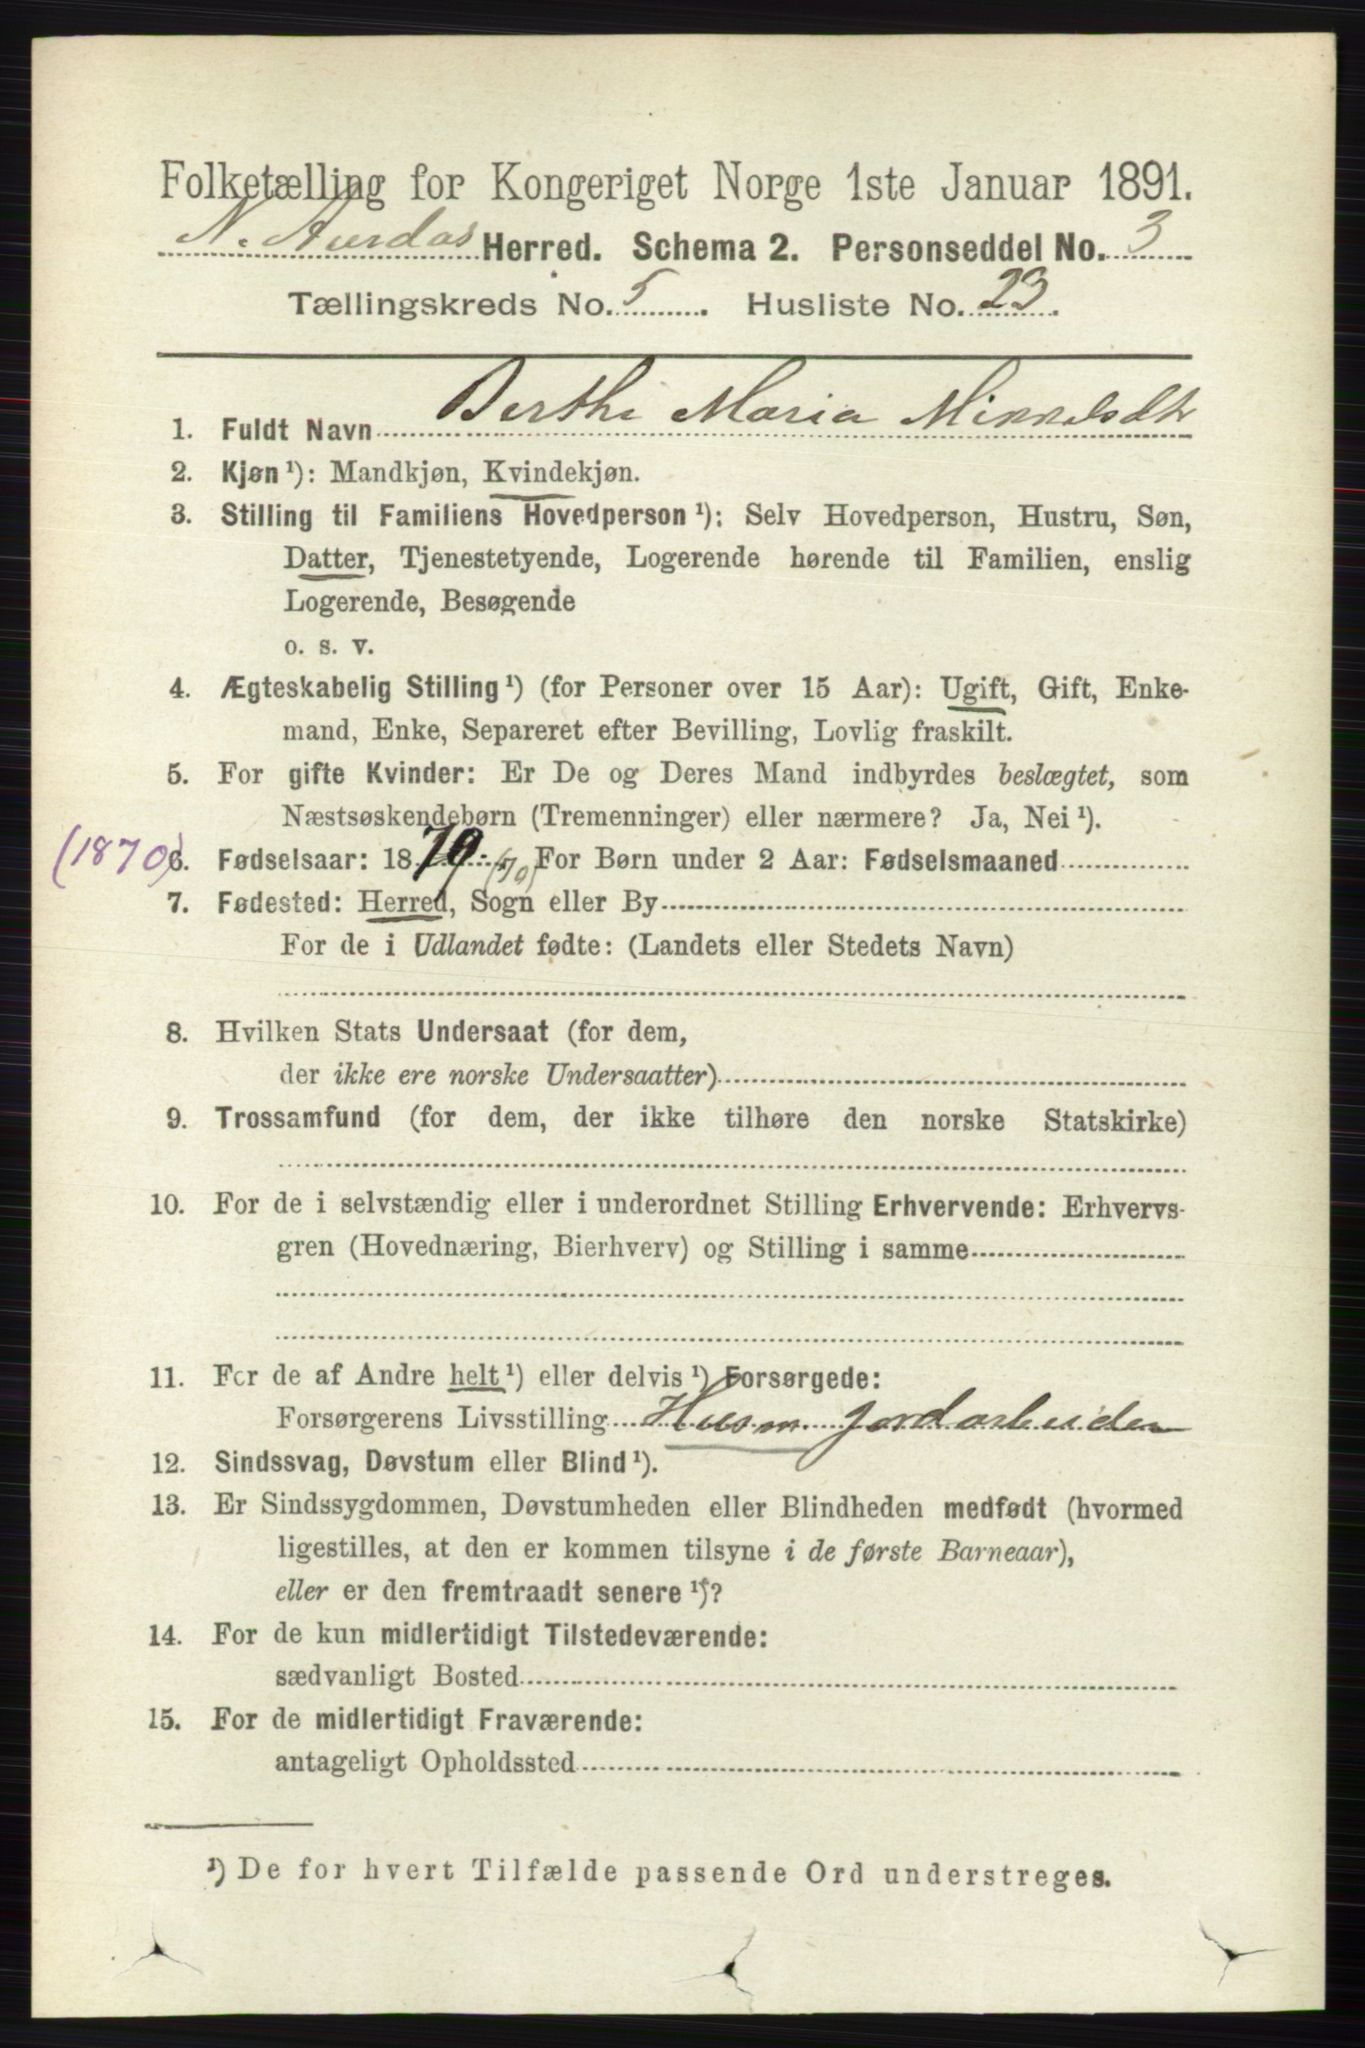 Folketælling for Kongeriget Norge 1ste Januar 1891.
N. Aurdas Herred. Schema 2. Personseddel No. 3
Tællingskreds No. 5. Husliste No. 23.
1. Fuldt Navn Berthe Maria Mikkelsdtr
2. Kjøn ¹): Mandkjøn, Kvindekjøn.
3. Stilling til Familiens Hovedperson ¹): Selv Hovedperson, Hustru, Søn,
Datter, Tjenestetyende, Logerende hørende til Familien, enslig
Logerende, Besøgende
o. s. v.
4. Ægteskabelig Stilling ¹) (for Personer over 15 Aar): Ugift, Gift, Enke-
mand, Enke, Separeret efter Bevilling, Lovlig fraskilt.
5. For gifte Kvinder: Er De og Deres Mand indbyrdes beslægtet, som
Næstsøskendebørn (Tremenninger) eller nærmere? Ja, Nei ¹).
(1870) 6. Fødselsaar: 1870. (70) For Børn under 2 Aar: Fødselsmaaned
7. Fødested: Herred, Sogn eller By
For de i Udlandet fødte: (Landets eller Stedets Navn)
8. Hvilken Stats Undersaat (for dem,
der ikke ere norske Undersaatter)
9. Trossamfund (for dem, der ikke tilhøre den norske Statskirke)
10. For de i selvstændig eller i underordnet Stilling Erhvervende: Erhvervs-
gren (Hovednæring, Bierhverv) og Stilling i samme
11. For de af Andre helt ¹) eller delvis ¹) Forsørgede:
Forsørgerens Livsstilling Husm. Jordarbeider
12. Sindssvag, Døvstum eller Blind ¹).
13. Er Sindssygdommen, Døvstumheden eller Blindheden medfødt (hvormed
ligestilles, at den er kommen tilsyne i de første Barneaar),
eller er den fremtraadt senere ¹)?
14. For de kun midlertidigt Tilstedeværende:
sædvanligt Bosted
15. For de midlertidigt Fraværende:
antageligt Opholdssted
¹) De for hvert Tilfælde passende Ord understreges.